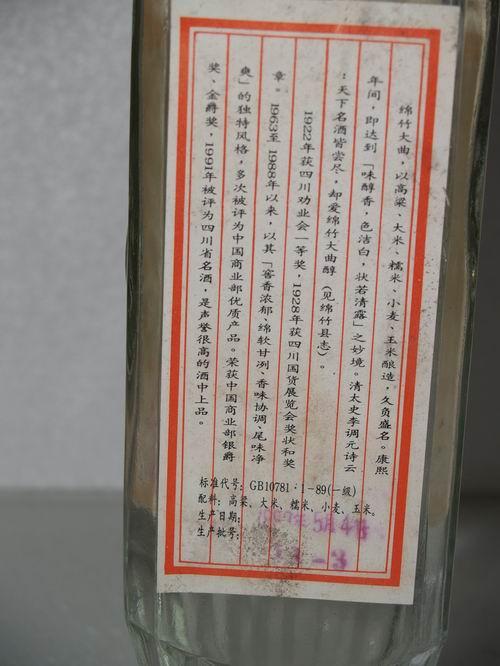 绵竹大曲，以高梁、大米、糯米、小麦、玉米酿造，久负盛名。康熙
年间，即达到「味醇香，色洁白，状若清露」之妙境。清太史李调元诗云
：天下名酒皆尝尽，却爱绵竹大曲醇（见绵竹县志）。
1922年获四川劝业会一等奖，1928年获四川国货展览会奖状和奖
章。1963至1988年以来，以其「窖香浓郁、绵软甘冽、香味协调、尾味净
爽」的独特风格，多次被评为中国商业部优质产品。荣获中国商业部银爵
奖、金爵奖，1991年被评为四川省名酒，是声誉很高的酒中上品。
标准代号：GB10781：1-89(一级)
配料：高梁、大米、糯米、小麦、玉米。
生产日期：5月4
生产批号：-3